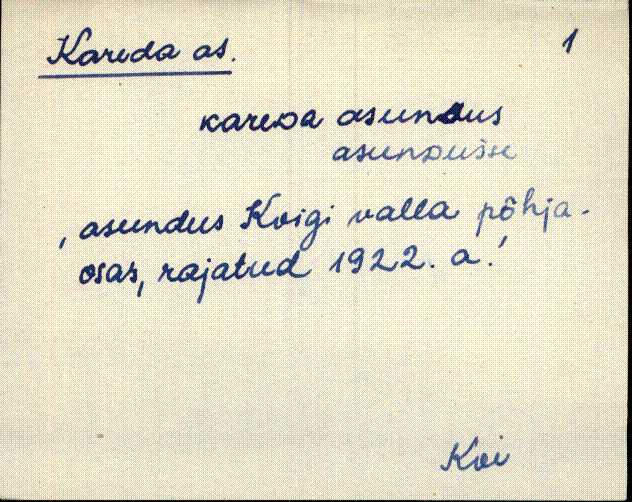 Kareda as.
1
kareda asundus
asundusse
, asundus Koigi valla põhja-
osas, rajatud 1922. a.'
Koi